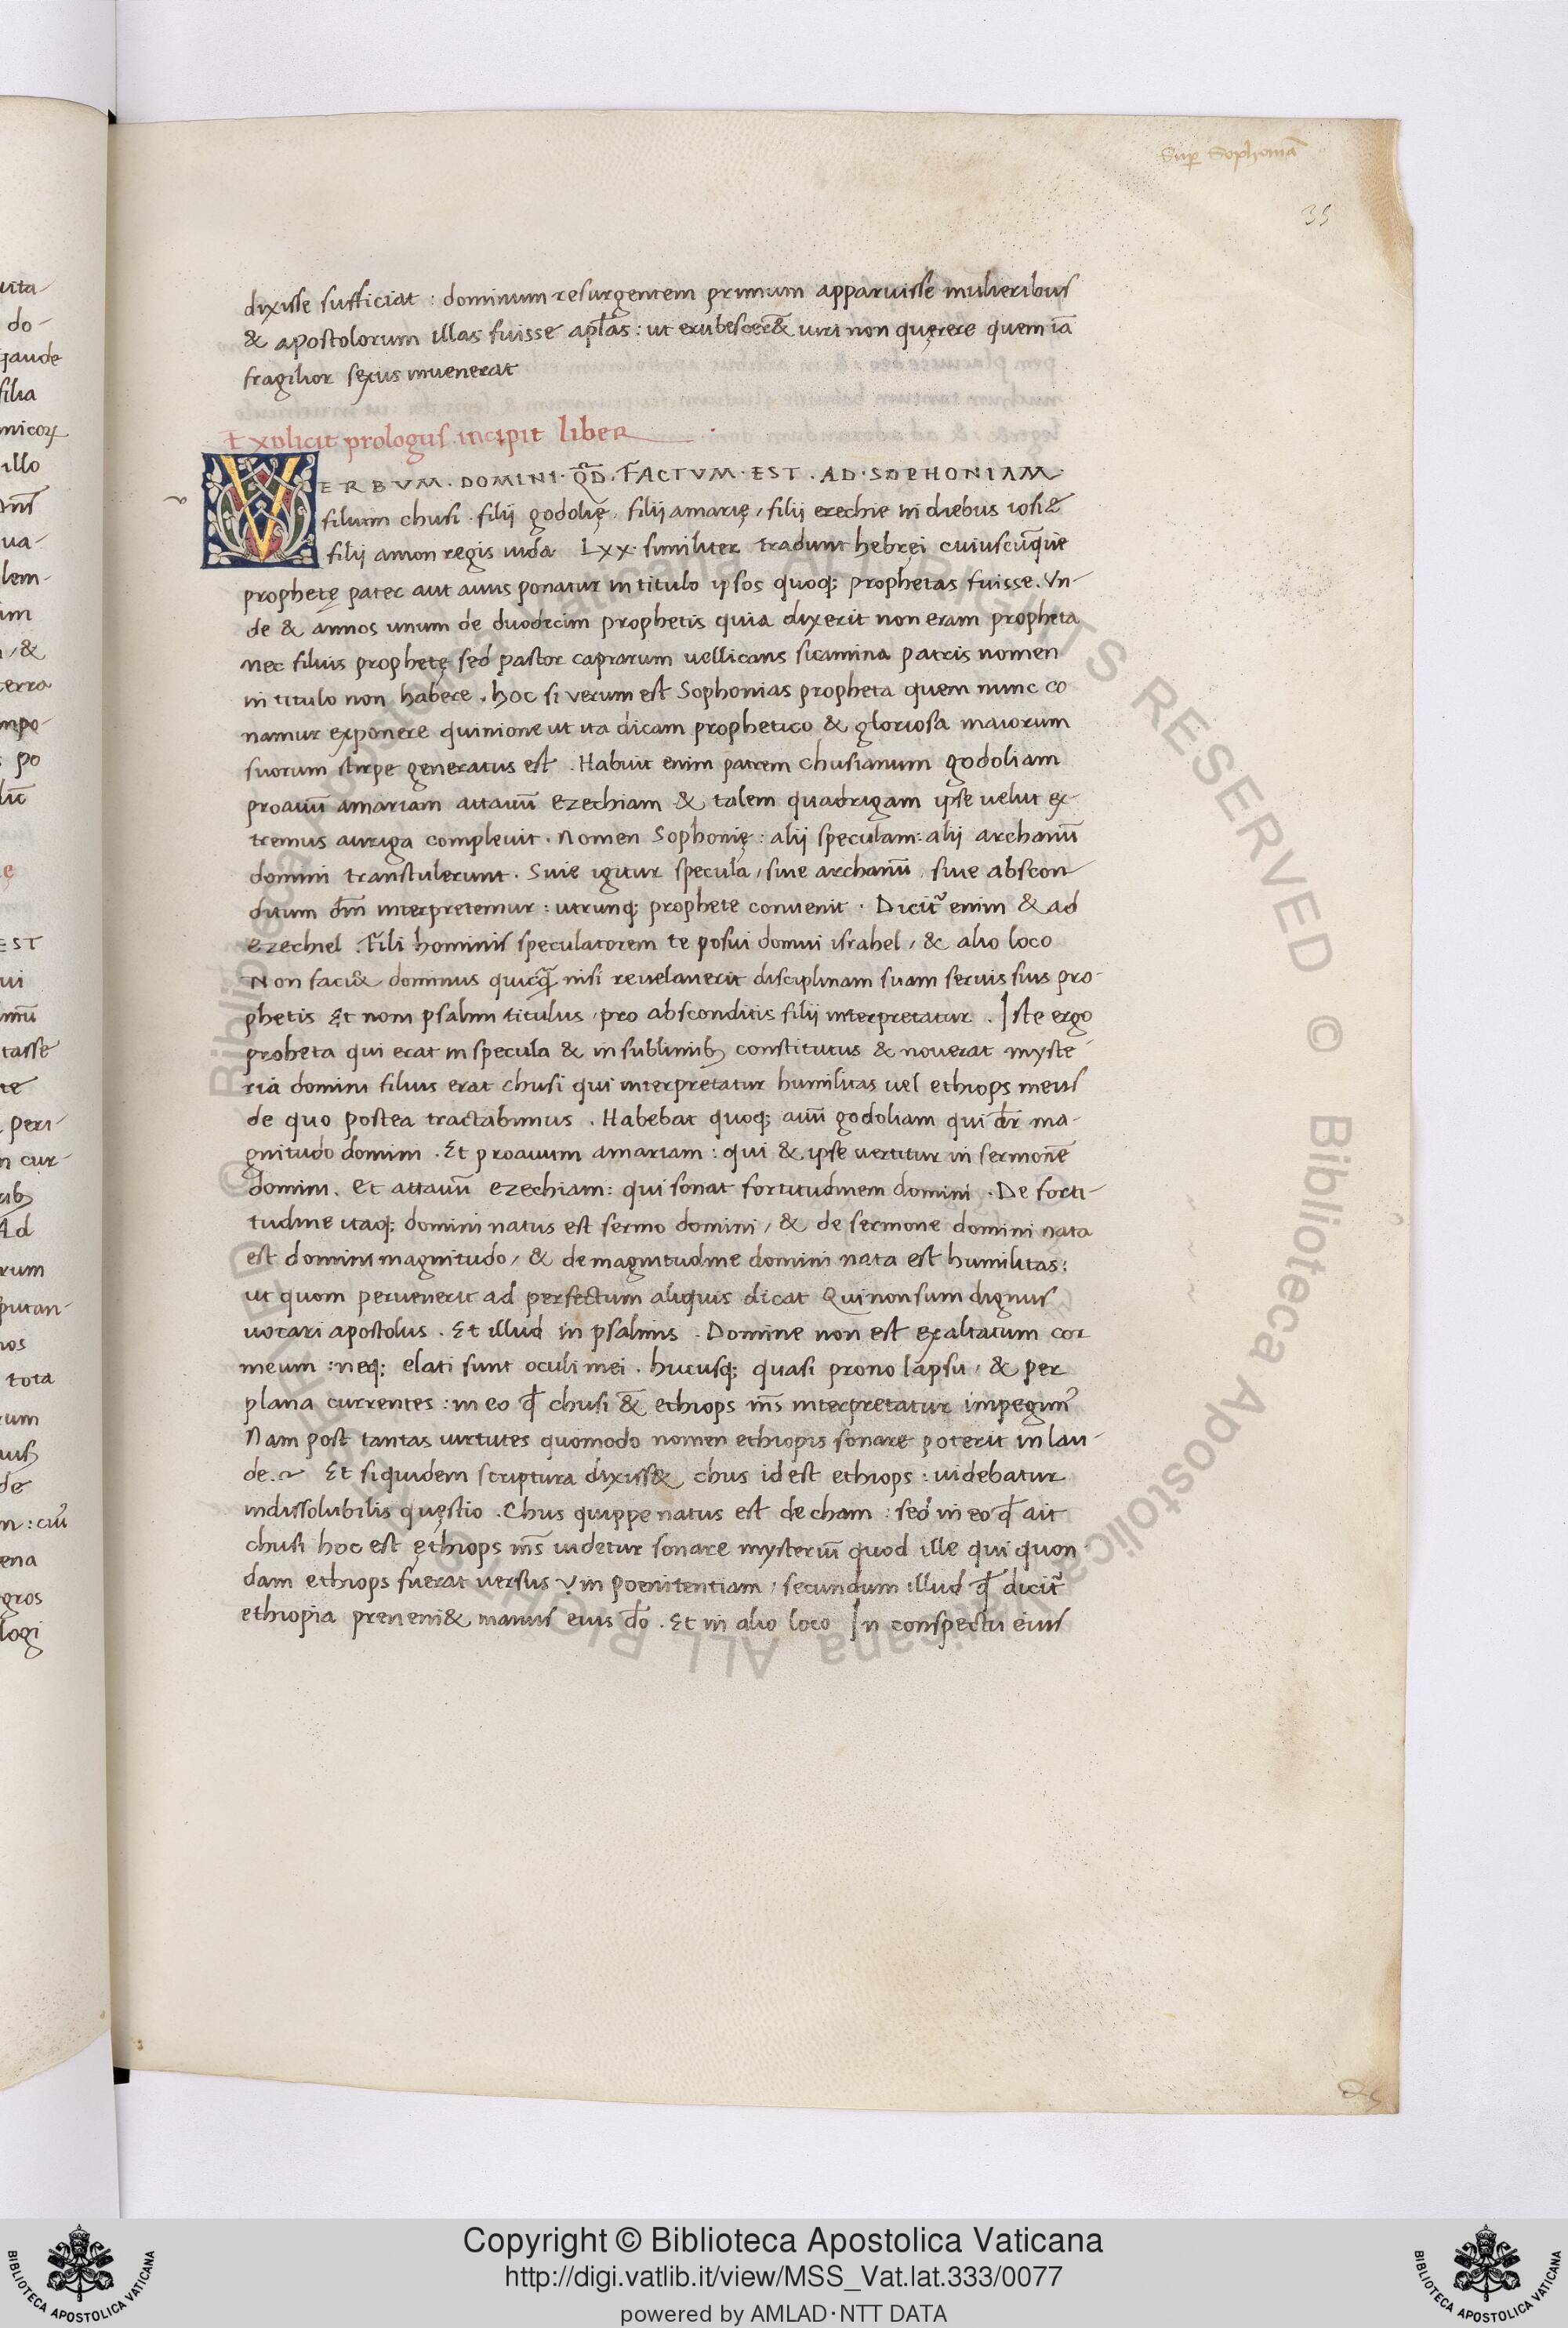 Sup Sophoniā
35
dixisse sufficiat : dominum resurgentem primum apparuisse mulieribus
& apostolorum illas fuisse aptas : ut erubescer& uiri non quęrere quem iā
fragilior sexus inuenerat
Explicit prologus incipit liber
VERBVM · DOMINI · QD̄ · FACTVM · EST · AD · SOPHONIAM ·
filium chusi · filij godolię · filij amarię / filij ezechie in diebus iosi&
filij amon regis iuda LXX · similiter tradunt hebręi cuiuscūque
prophetę pater aut auus ponatur in titulo ipsos quoq; prophetas fuisse . Vn-
de & amos unum de duodecim prophetis quia dixerit non eram propheta
nec filius prophetę sed pastor caprarum uellicans sicamina patris nomen
in titulo non habere . hoc si uerum est Sophonias propheta quem nunc co
namur exponere quinione ut ita dicam prophetico & gloriosa maiorum
suorum stirpe generatus est . Habuit enim patrem chusi auum godoliam
proauū amariam attauū ezechiam & talem quadrigam ipse uelut ex-
tremus auriga compleuit . Nomen Sophonię : alij speculam : alij archanū
domini transtulerunt . Siue igitur specula / siue archanū / siue abscon
ditum dm̄ interpretemur : utrunq; prophete conuenit . Dicit᷑ enim & ad
ezechiel . Fili hominis speculatorem te posui domui israhel / & alio loco
Non faci& dominus quicq̄ nisi reuelauerit disciplinam suam seruis suis pro-
phetis Et noni psalmi titulus / pro absconditis filij interpretatur . Iste ergo
probeta qui erat in specula & in sublimib; constitutus & nouerat myste-
ria domini filius erat chusi qui interpretatur humilitas uel ethiops meus
de quo postea tractabimus . Habebat quoq; auū godoliam qui dr̄ ma-
gnitudo domini . Et proauum amariam : qui & ipse uertitur in sermonē
domini . Et attauū ezechiam : qui sonat fortitudinem domini . De forti-
tudine itaq; domini natus est sermo domini / & de sermone domini nata
est domini magnitudo / & de magnitudine domini nata est humilitas :
ut quom peruenerit ad perfectum aliquis dicat Qui non sum dignus
uocari apostolus . Et illud in psalmis . Domine non est exaltatum cor
meum : neq; elati sunt oculi mei . hucusq; quasi prono lapsu / & per
plana currentes : in eo qđ chusi &̄ ethiops m̄s interpretatur impegim᷒
Nam post tantas uirtutes quomodo nomen ethiopis sonare poterit in lau-
de . Et siquidem scriptura dixiss& chus id est ethiops : uidebatur
indissolubilis quęstio . Chus quippe natus est de cham : sed in eo qđ ait
chusi hoc est ęthiops m̄s uidetur sonare mysteriū quod ille qui quon-
dam ethiops fuerat uersus in poenitentiam / secundum illud qđ dicit᷑
ethiopia preueni& manus eius do̅ . Et in alio loco In conspectu eius
Copyright © Biblioteca Apostolica Vaticana
http://digi.vatlib.it/view/MSS_Vat.lat.333/0077
powered by AMLAD·NTT DATA
BIBLIOTECA APOSTOLICA VATICANA
BIBLIOTECA APOSTOLICA VATICANA